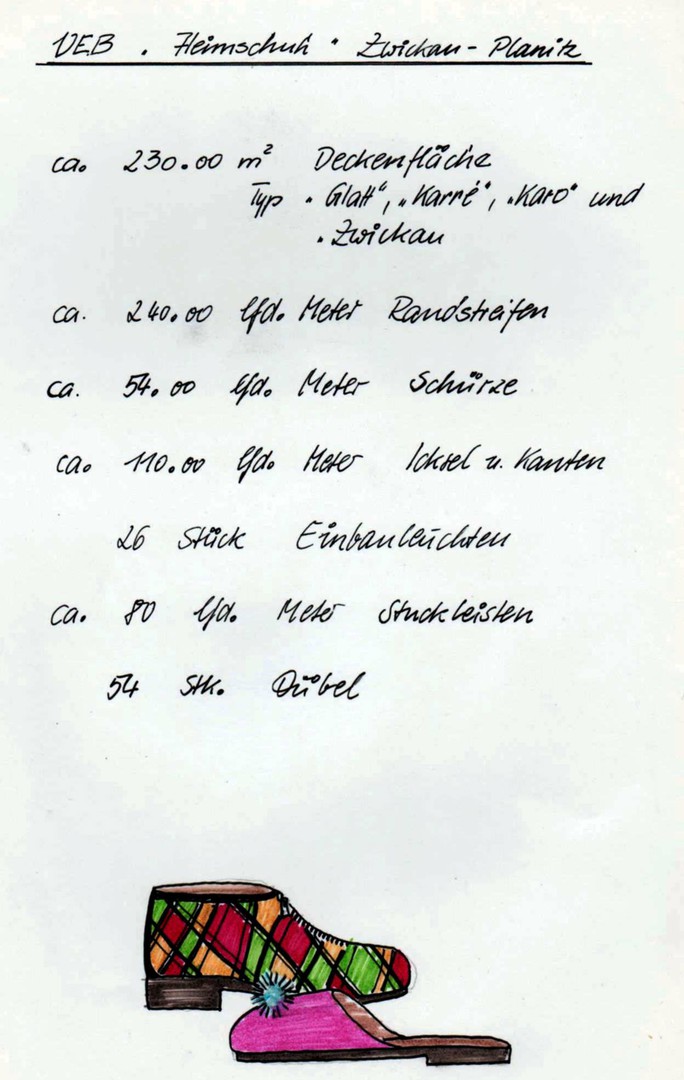 VEB „Heimschuh" Zwickau - Planitz
ca. 230.00 m² Deckenfläche
Typ „Glatt", „Karré", „Karo" und
„Zwickau
ca. 240.00 lfd. Meter Randstreifen
ca. 54.00 lfd. Meter Schürze
ca. 110.00 lfd. Meter Icksel u. Kanten
26 Stück Einbauleuchten
ca. 80 lfd. Meter Stuckleisten
54 Stk. Dübel